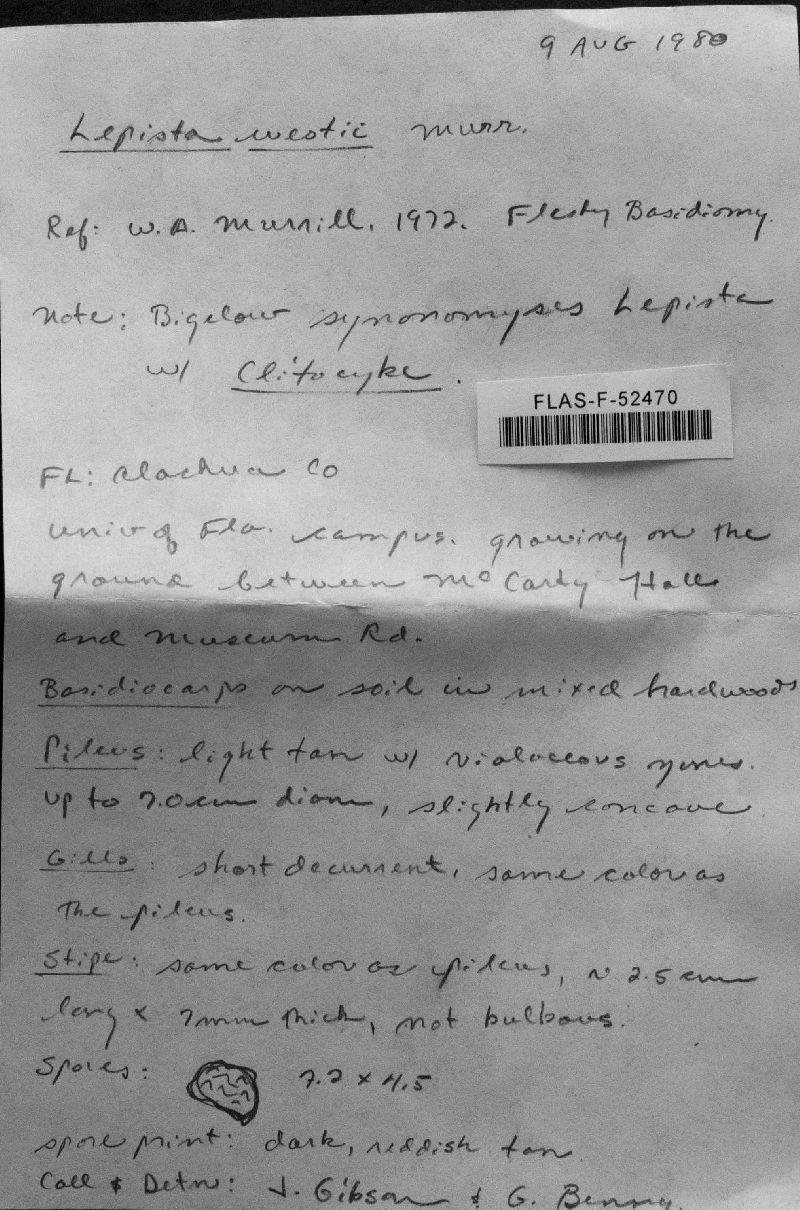 9 AUG 1980
Lepista westii Murr.
Ref: W.A. Murrill. 1972. Fleshy Basidiomy.
Note: Bigelow synonomyses Lepista
w/ Clitocybe.
FLAS-F-52470
FL: Alachua Co
Univ of Fla. campus. growing on the
ground between McCarty Hall
and Museum Rd.
Basidiocarps on soil in mixed hardwoods
Pileus: light tan w/ violaceous zones.
up to 7.0cm diam, slightly concave
Gills: short decurrent, same color as
the pileus.
Stipe: same color as pileus, ~ 2.5 cm
long x 7mm thick, not bulbous.
Spores: 7.2 x 4.5
spore print: dark, reddish tan
Coll & Detn: J. Gibson & G. Benny.